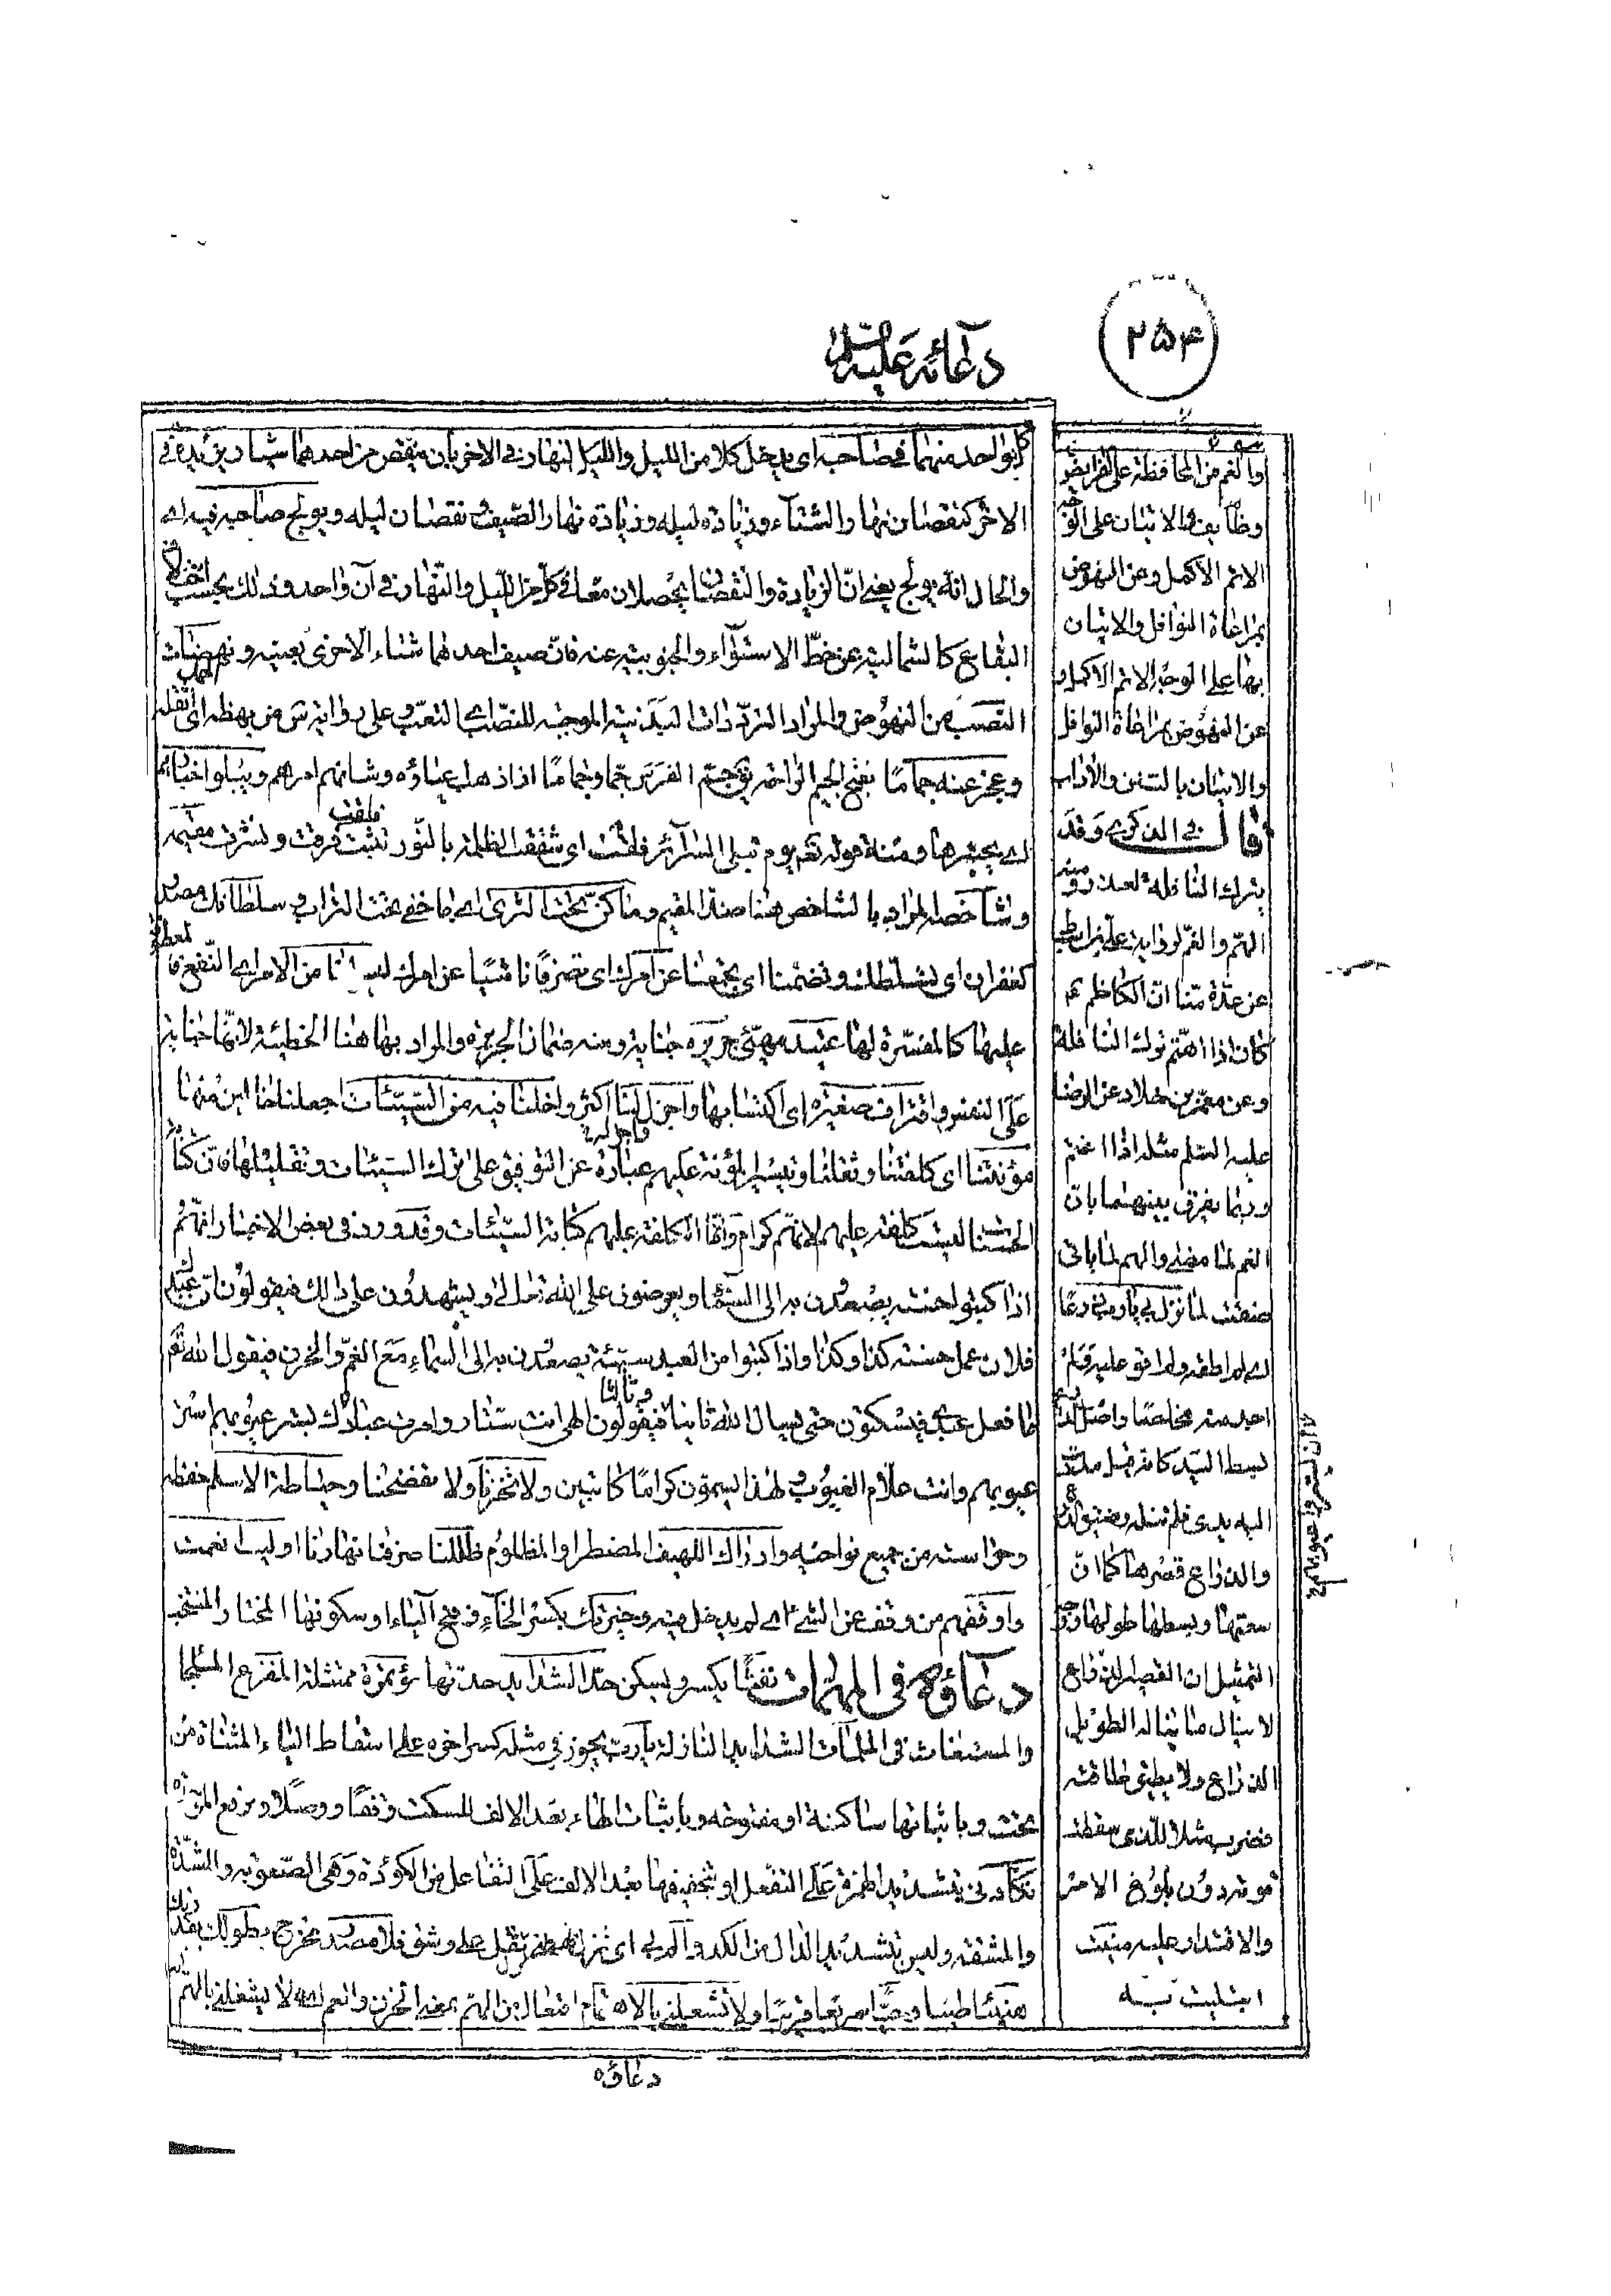 ۲۵۴
دعائه علیه السلم
كل واحد منهما فى صاحبه اى يدخل كلا من الليل والنهار فى الاخر بان ينقص من احدهما شيئا ويزيده فى
الاخر كنقصان نهار الشتاء وزيادة ليله وزيادة نهار الصيف و نقصان ليله ويولج صاحبه فيه اى
والحال انه يولج يعنى ان الزيادة والنقصان يحصلان معا فى كل من الليل والنهار فى آن واحد وذلك بحسب اختلاف
البقاع كالشمالية عن خط الاستواء والجنوبية عنه فان صيف احدهما شتاء الاخرى بعينه ونهضات
النصب من النهوض والمراد التردّدات البدنية الموجبه للنصب اى التعب وعلى رواية س من بهظه الحمل اى اثقله
وعجز عنه جماما بفتح الجيم الراحة يق جمّ الفرس جما وجماما اذا ذهب اعياؤه وشانهم امرهم ويبلو اخبارهم
اى يختبرها ومنه قوله تعم يوم تبلى السرائر فلقت اى شققت الظلمة بالنّور بثثت فرقت ونشرت مقيمه
وشاخصه المراد بالشاخص هنا ضد المقيم وما كنّ تحت الثرى اى ما خفى تحت التراب و سلطانك مصدر
كغفران اى تسلّطك وتضمّنا اى يجمعنا عن امرك اى تصرفا ناشيا عن امرك ليس لنا من الامر اى النّفع
عليها كالمفسّرة لها عتيد مهيّئ جريره جناية ومنه ضمان الجريره والمراد بها هنا الخطيئة لانّها جناية
على النفس واقتراف صغيره اى اكتسابها واجزل لنا اكثر واخلنا فيه من السّيّئات اجعلنا خالين منها
مؤنتنا اى كلفتنا وثقلنا وتيسير المؤنة عليهم عبارة عن التوفيق على ترك السيئات وتقليلها فان كتابة
الحسنات ليست كلفته عليهم لانهم كرام وانّما الكلفة عليهم كتابة السّيّئات وقد ورد فى بعض الاخبار انهم
اذا كتبوا حسنه يصعدون به الى السّماء ويعرضون على الله تعالى ويشهدون على ذلك فيقولون ان عبدك
فلان عمل حسنه كذا وكذا واذا كتبوا من العبد سيئة يصعدون به الى السماء مع الغم والحزن فيقول الله تعم
ما فعل عبدى فيسكتون حتى يسال الله ثانيا وثالثا فيقولون الهى انت ستّار وامرت عبادك بستر عيوبهم استر
عيوبهم وانت علام الغيوب و لهذا يسمّون كراما كاتبين ولا تخزنا ولا تفضحنا وحياطة الاسلام حفظه
وحراسته من جميع نواحيه وادراك اللهيف المضطر او المظلوم ظللنا صرفنا نهارنا او ليس نعمت
واوقفهم من وقف عن الشئ اى لم يدخل فيه وخيرتك بكسر الخاء وفتح الياء او سكونها المختار المنتخب
دعاؤه فى المهمّات يفثأ يكسر ويسكن حدّ الشدايد حدتها بهمزة ممتثله المفزع الملجأ
والمستغاث فى الملمّات الشدايد النازلة يا ربّ يجوز فى مثله كسر اخره على اسقاط الياء المثناة من
تحت وباثباتها ساكنة او مفتوحه وباثبات الهاء بعد الالف للسكت وقفا ووصلا
تكأدنى بتشديد الهمزة على التفعل او بتخفيفها بعد الالف على التفاعل من الكؤدة وهى الصّعوبه والشدّة
والمشقه وليس بتشديد الدال من الكد والم بى اى نزل بهظنى ثقل على وشق فلا مصدر مخرج بطولك بفضلك
هنيئا طيبا وحيّا سريعا قريبا ولا تشغلنى بالاهتمام افتعال من الهمّ بمعنى الحزن والغم اى لا تشغلنى بالهمّ
والغم من المحافظة على الفرايض
وظايف والاتيان على الوجه
الاتم الاكمل وعن النهوض
بمراعاة النوافل والاتيان
بها على الوجه الاتم الاكمل و
عن النهوض بمراعاة النوافل
والاتيان بالسنن والآداب
قال فى الذكرى وقد
يترك النافلة لعذر ومنه
الهمّ والغمّ لرواية على بن اسباط
عن عدّة منّا انّ الكاظم ع
كان اذا اهتم ترك النافلة
وعن معمّر بن خلاد عن الرضا
عليه السّلم مثله اذا اغتم
وربما يفرق بينهما بان
الغم لما مضى والهم لما ياتى
ضقت لما نزل بى يا رب ذرعا
اى لم اطقه ولم اقو عليه ولم
اجد منه مخلصا واصل الذرع
بسط اليد كانه قيل مددت
اليه يدى فلم تنله وضيق الذرع
والذراع قصرها كما ان
سعتها وبسطها طولها ووجه
التمثيل ان القصير الذراع
لا ينال ما يناله الطويل
الذراع ولا يطيق طاقته
فضرب مثلا للذى سقطت
قوته دون بلوغ الامر
والاقتدار عليه منيت
ابتليت به
دعاؤه